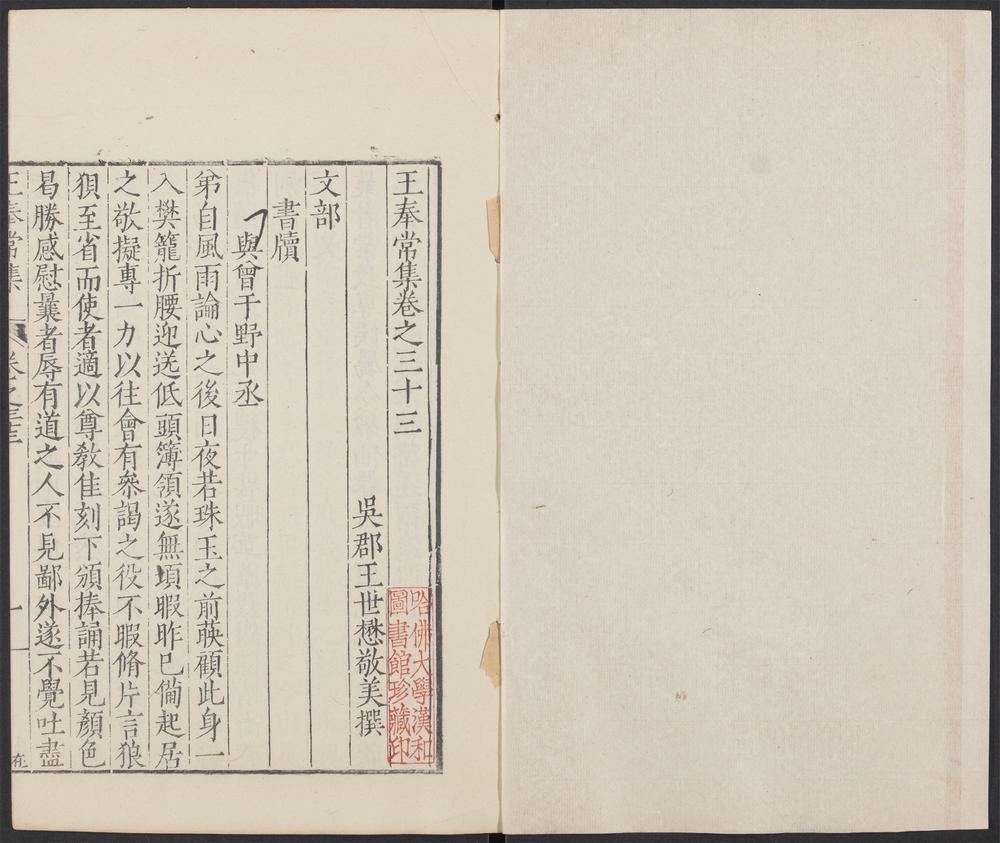 王奉常集卷之三十三
吳郡王世懋敬美撰
文部
書牘
與曾于野中丞
弟自風雨論心之後日夜若珠玉之前暎顧此身一
入樊籠折腰迎送低頭簿領遂無頃暇昨已備起居
之敬擬專一力以往會有叅謁之役不暇脩片言狼
狽至省而使者適以尊敎佳刻下頒捧誦若見顏色
曷勝感慰曩者辱有道之人不見鄙外遂不覺吐盡
王奉常集
卷之三十三
一
哈佛大學漢和
圖書館珍藏印